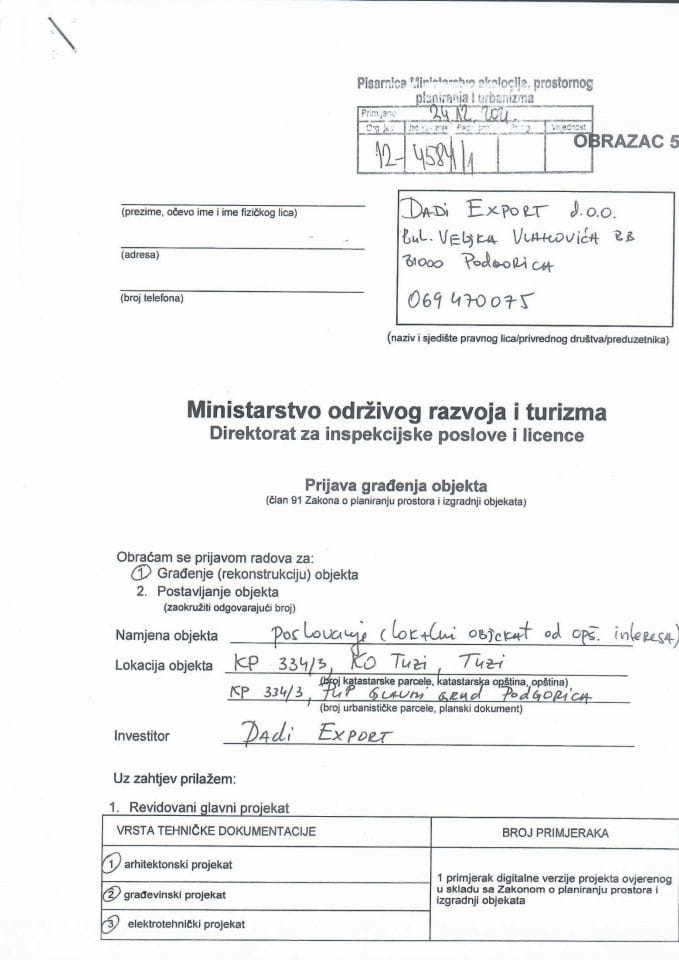 Pisarnica Ministarstvo ekologije, prostornog
planiranja i urbanizma
Primljeno 24.12.2021.
Org. jed. Jed. klas. znak Redni broj Prilog Vrijednost
12- 4584/1
OBRAZAC 5
(prezime, očevo ime i ime fizičkog lica)
(adresa)
(broj telefona)
DADI EXPORT d.o.o.
Bul. VELJKA VLAHOVIĆA BB
81000 PODGORICA
069 470075
(naziv i sjedište pravnog lica/privrednog društva/preduzetnika)
Ministarstvo održivog razvoja i turizma
Direktorat za inspekcijske poslove i licence
Prijava građenja objekta
(član 91 Zakona o planiranju prostora i izgradnji objekata)
Obraćam se prijavom radova za:
1 Građenje (rekonstrukciju) objekta
2. Postavljanje objekta
(zaokružiti odgovarajući broj)
Namjena objekta poslovanje (lokalni objekat od opš. interesa)
Lokacija objekta KP 334/3, KO Tuzi, Tuzi
(broj katastarske parcele, katastarska opština, opština)
KP 334/3, PUP GLAVNI GRAD PODGORICA
(broj urbanističke parcele, planski dokument)
Investitor DADI EXPORT
Uz zahtjev prilažem:
1. Revidovani glavni projekat
VRSTA TEHNIČKE DOKUMENTACIJE BROJ PRIMJERAKA
1 arhitektonski projekat
2 građevinski projekat
3 elektrotehnički projekat
1 primjerak digitalne verzije projekta ovjerenog
u skladu sa Zakonom o planiranju prostora i
izgradnji objekata